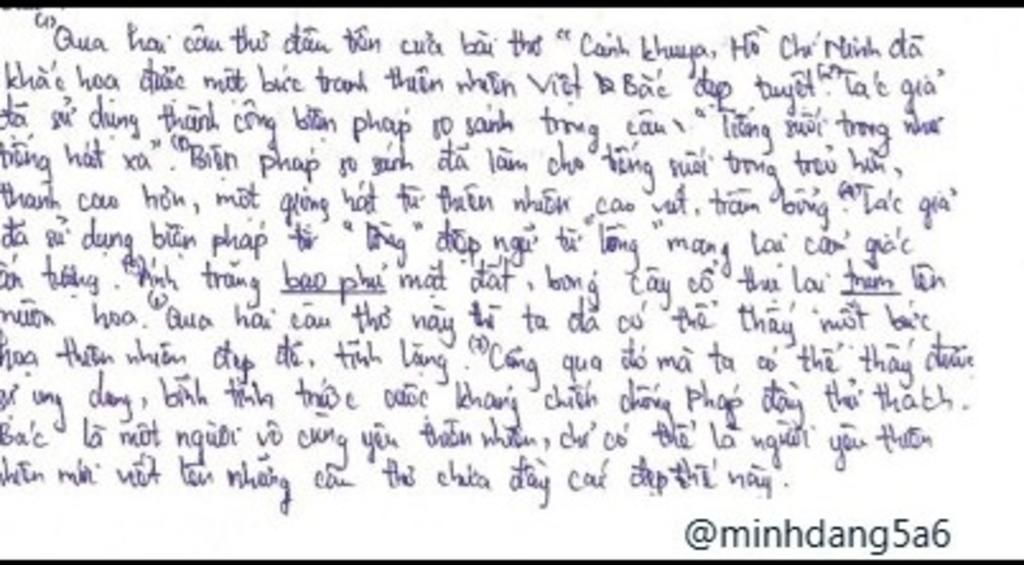 (1) Qua hai câu thơ đầu tiên của bài thơ "Cảnh khuya, Hồ Chí Minh đã
khắc hoạ được một bức tranh thiên nhiên Việt Bắc đẹp tuyệt. (2) Tác giả
đã sử dụng thành công biện pháp so sánh trong câu: "Tiếng suối trong như
tiếng hát xa". (3) Biện pháp so sánh đã làm cho tiếng suối trong trẻo hơn,
thanh cao hơn, một giọng hát từ thiên nhiên cao vút, trầm bổng. (4) Tác giả
đã sử dụng biện pháp từ "lồng" điệp ngữ từ "lồng" mang lại cảm giác
ấn tượng. (5) Ánh trăng bao phủ mặt đất, bóng cây cổ thụ lại trùm lên
muôn hoa. (6) Qua hai câu thơ này thì ta đã có thể thấy một bức
hoạ thiên nhiên đẹp đẽ, tĩnh lặng. (7) Cũng qua đó mà ta có thể thấy được
sự ung dung, bình tĩnh trước cuộc kháng chiến chống Pháp đầy thử thách.
Bác là một người vô cùng yêu thiên nhiên, chỉ có thể là người yêu thiên
nhiên mới viết lên những câu thơ chứa đầy cái đẹp thế này.
@minhdang5a6